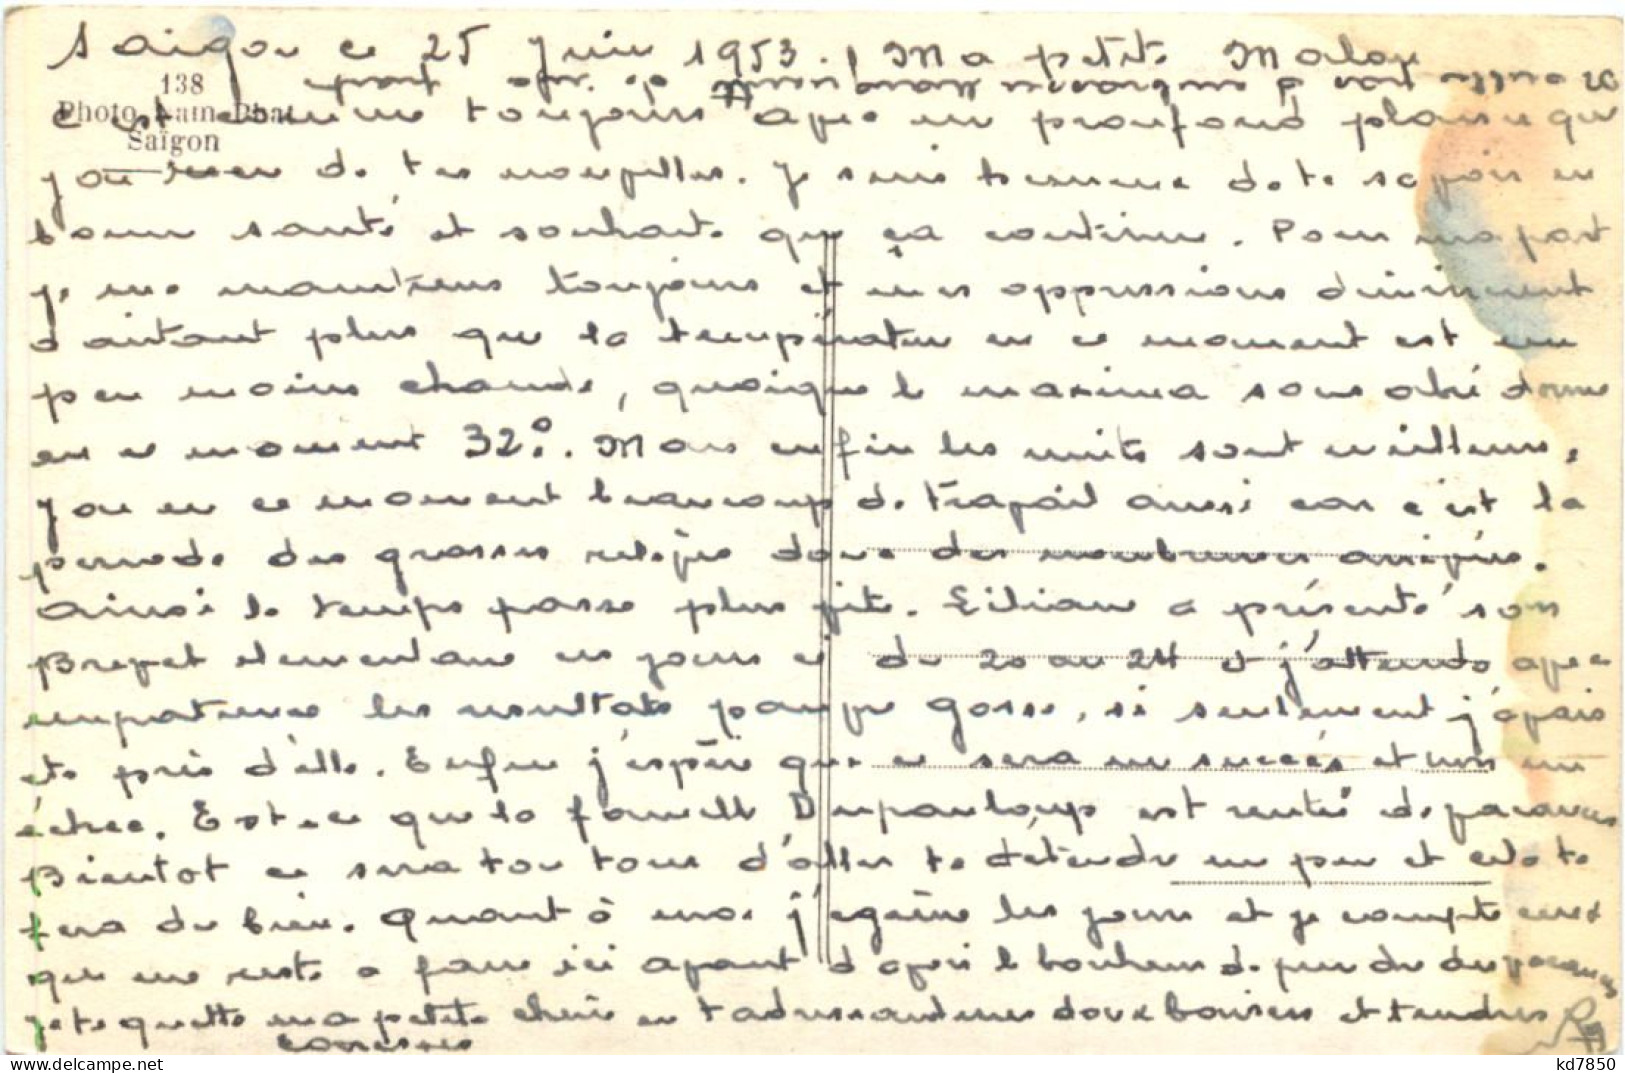 Saigon ce 25 Juin 1953. Ma petite Malou
138
Photo Nam-Phat
Saïgon
c'est comme toujours avec un profond plaisir que
j'ai reçu de tes nouvelles. Je suis heureux de te savoir en
bonne santé et souhaite que ça continue. Pour ma part
je me maintiens toujours et mes oppressions diminuent
d'autant plus que la température en ce moment est un
peu moins chaude, quoique le maxima sous abri donne
en ce moment 32°. Mais enfin les nuits sont meilleures,
J'ai en ce moment beaucoup de travail aussi car c'est la
periode des grosses relèves donc des nombreuses arrivées.
Ainsi le temps passe plus vite. Liliane a présenté son
Brevet elementaire ces jours ci du 20 au 24 et j'attends avec
impatience les resultats pauvre gosse, si seulement j'avais
ete près d'elle. Enfin j'espère que ce sera un succés et non un
échec. Est-ce que la famille Dupanloup est rentré de vacances
Bientot ce sera ton tour d'aller te détendre un peu et cela te
fera du bien. Quant à moi j'égrène les jours et je compte ceux
qui me reste a faire ici avant d'avoir le bonheur de prendre des vacances
je te quitte ma petite cherie en t'adressant mes doux baisers et tendres
caresses
kd7850